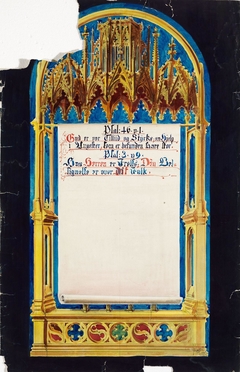 Psal: 46. v 1.
Gud er vor Tillid og Styrke, en Hjelp
i Angester, som er befunden saare stor.
Psal: 3. v 9.
Hos Herren er Frelse; Din Vel-
signelse er over Dit Folk.